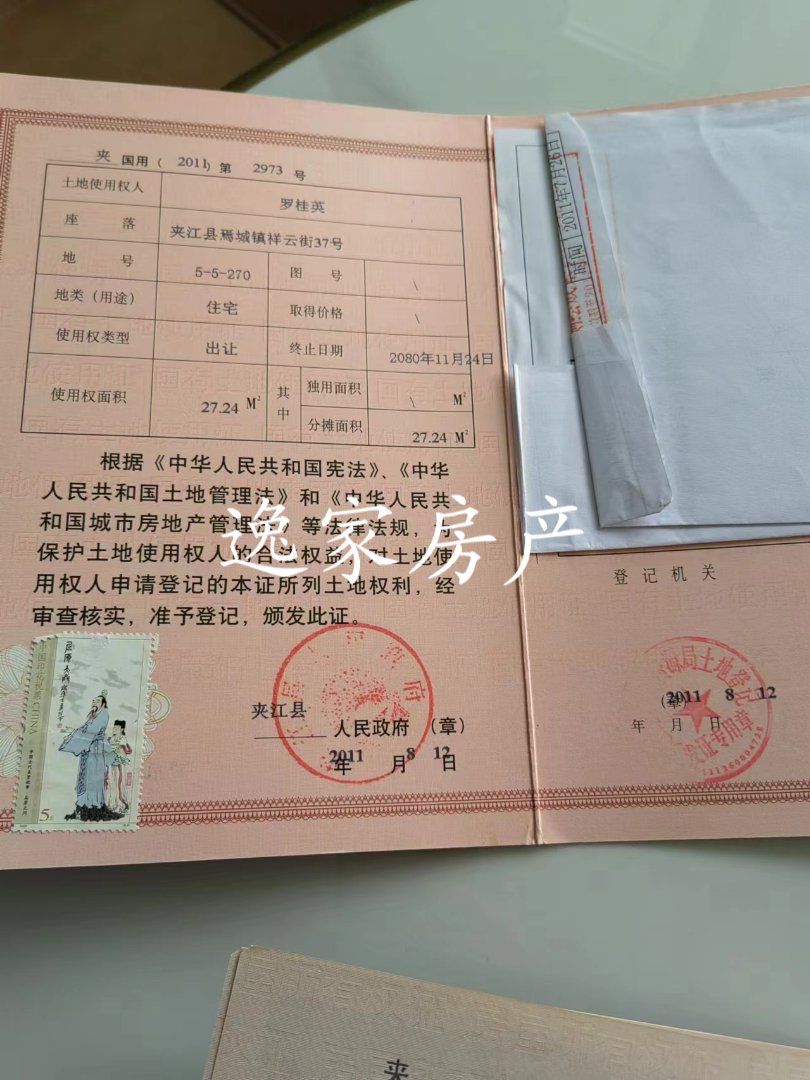 夹 国用（2011）第 2973 号
土地使用权人 罗桂英
座 落 夹江县焉城镇祥云街37号
地 号 5-5-270 图 号 \
地类（用途） 住宅 取得价格 \
使用权类型 出让 终止日期 2080年11月24日
使用权面积 27.24 M² 其中 独用面积 \ M²
分摊面积 27.24 M²
根据《中华人民共和国宪法》、《中华
人民共和国土地管理法》和《中华人民共
和国城市房地产管理法》等法律法规，为
保护土地使用权人的合法权益，对土地使
用权人申请登记的本证所列土地权利，经
审查核实，准予登记，颁发此证。
逸家房产
夹江县 人民政府（章）
2011年 8月 12日
中国印花税票 CHINA
5
时间 2011年7月26日
登记机关
(章)
2011 8 12
年 月 日
局土地登记
发证专用章
夹